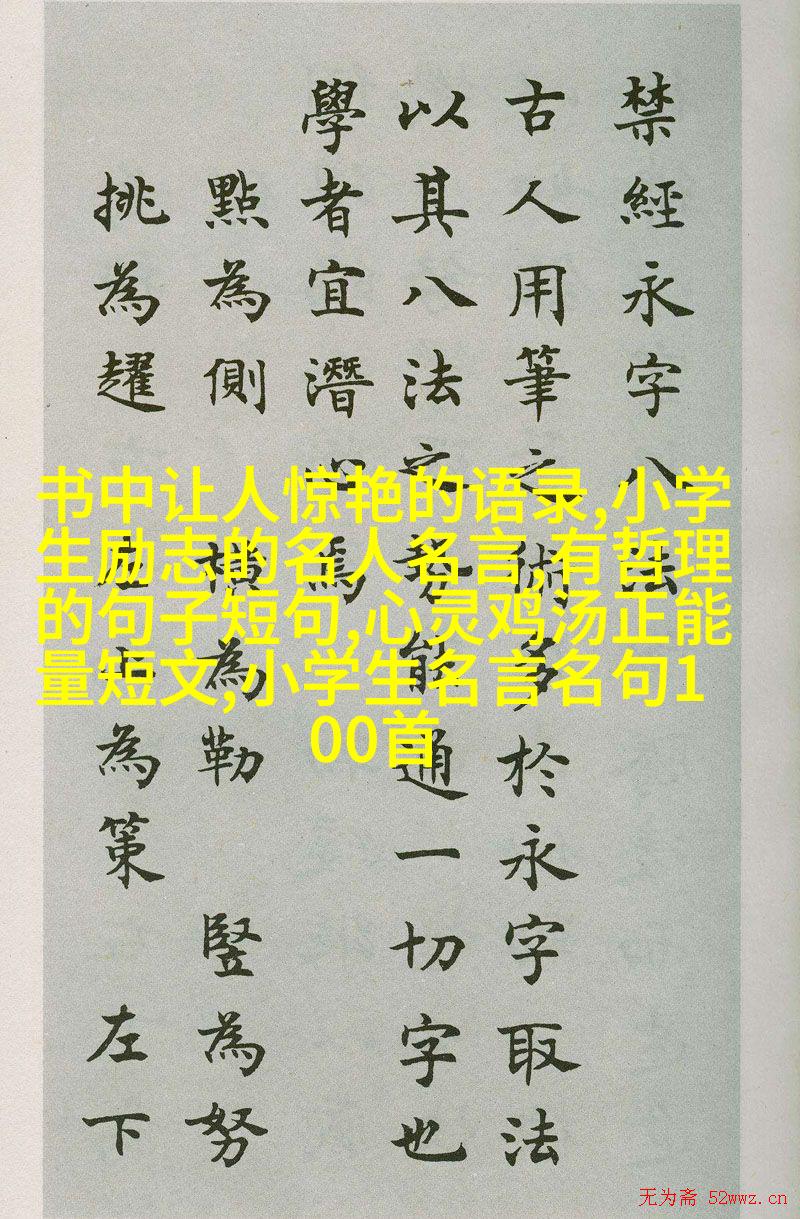 禁經永字八法
古人用筆之術多於永字取法
以其八法之勢能通一切字也
學者宜潛心焉
點為側 橫為勒 豎為努
挑為趯 左上為策 左下
书中让人惊艳的语录,小学
生励志的名人名言,有哲理
的句子短句,心灵鸡汤正能
量短文,小学生名言名句1
00首
无为斋 52wwz.cn